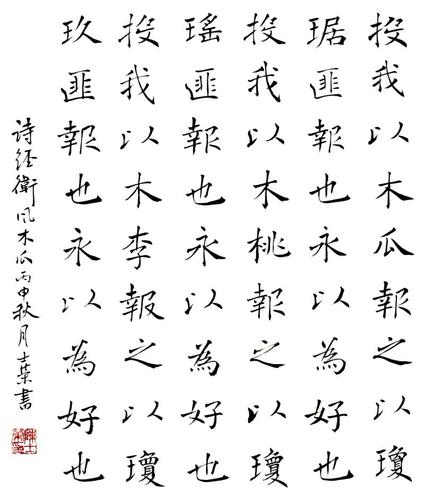 投我以木瓜報之以瓊
琚匪報也永以為好也
投我以木桃報之以瓊
瑤匪報也永以為好也
投我以木李報之以瓊
玖匪報也永以為好也
詩經衛風木瓜丙申秋月士書